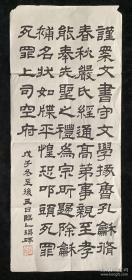 謹案文書守文學掾魯孔龢脩
春秋嚴氏經通高第事親至孝
能奉先聖之禮為宗所歸除龢
補名狀如牒平惶恐叩頭死罪
死罪上司空府
戊子冬至後五日臨乙瑛碑